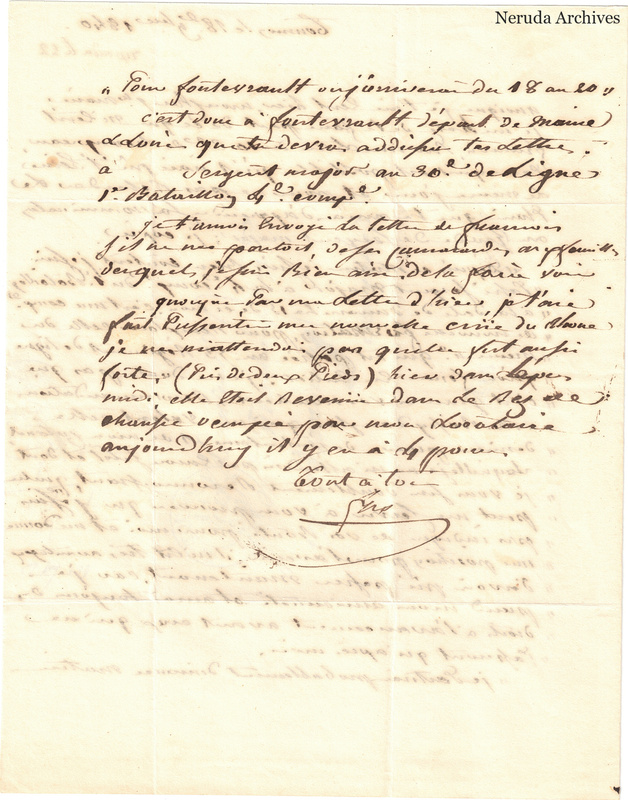 Neruda Archives
" Pour fontevrault ou j'arriverai du 18 au 20 "
c'est donc à fontevrault départ de maine
& Loire que tu devra addresser tes Lettre.
à Sergent major au 30e de Ligne
1er Bataillon 4e compe.
Je t'aurois Envoyé la lettre de francois
s'il ne me parloit de ses camarades
desquels je suis Bien aise de la faire voir
quoique Par ma Lettre d'hier je t'aie
fait Pressentir une nouvelle crüe du Rhone
je ne m'attendois pas quelle fut aussi
forte, (Près de deux Pieds) hier dans l'après
midi elle Etoit Revenue dans le Rez de
chaussée occupée par mon Locataire
aujourdhuy il y en à 4 pouces
Tout à toi